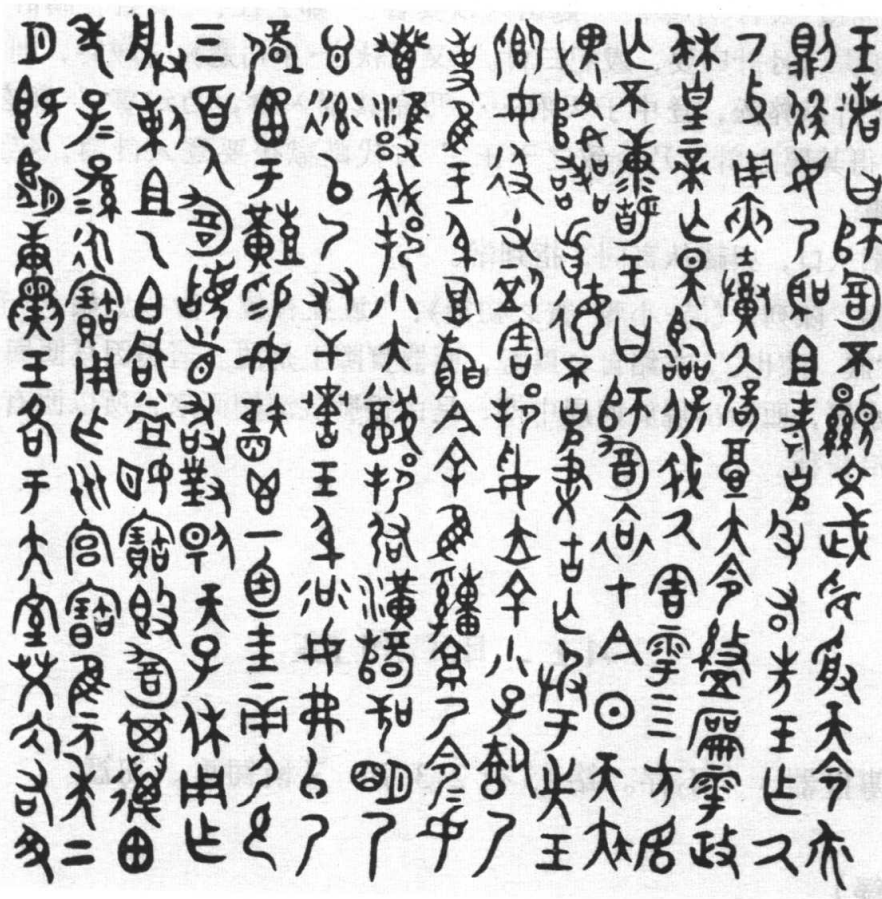 王若曰師訇不顯文武孚受天令亦
則於女乃聖且考克左右先王乍氒
厷股用夾召氒辟奠大令盩龢雩政
肆皇帝亡斁臨保我氒周雩四方民
亡不康靜王曰師訇哀才今日天疾
畏降喪首德不克妻古亡承于先王
鄉女彶屯卹周邦妥立余小子載乃
事隹王身厚稽今余隹申就乃令令女
叀雝我邦小大猷邦佑潢辥敬明乃
心率以乃友干吾王身谷女弗以乃
辟圅于艱易女秬鬯一卣圭瓚尸允
三百人訇稽首敢對揚天子休用乍
朕剌且乙白同益姬寶簋訇其萬囟
年子子孫孫永寶用乍州宮寶隹元年二
月既望庚寅王各于大室榮內右訇